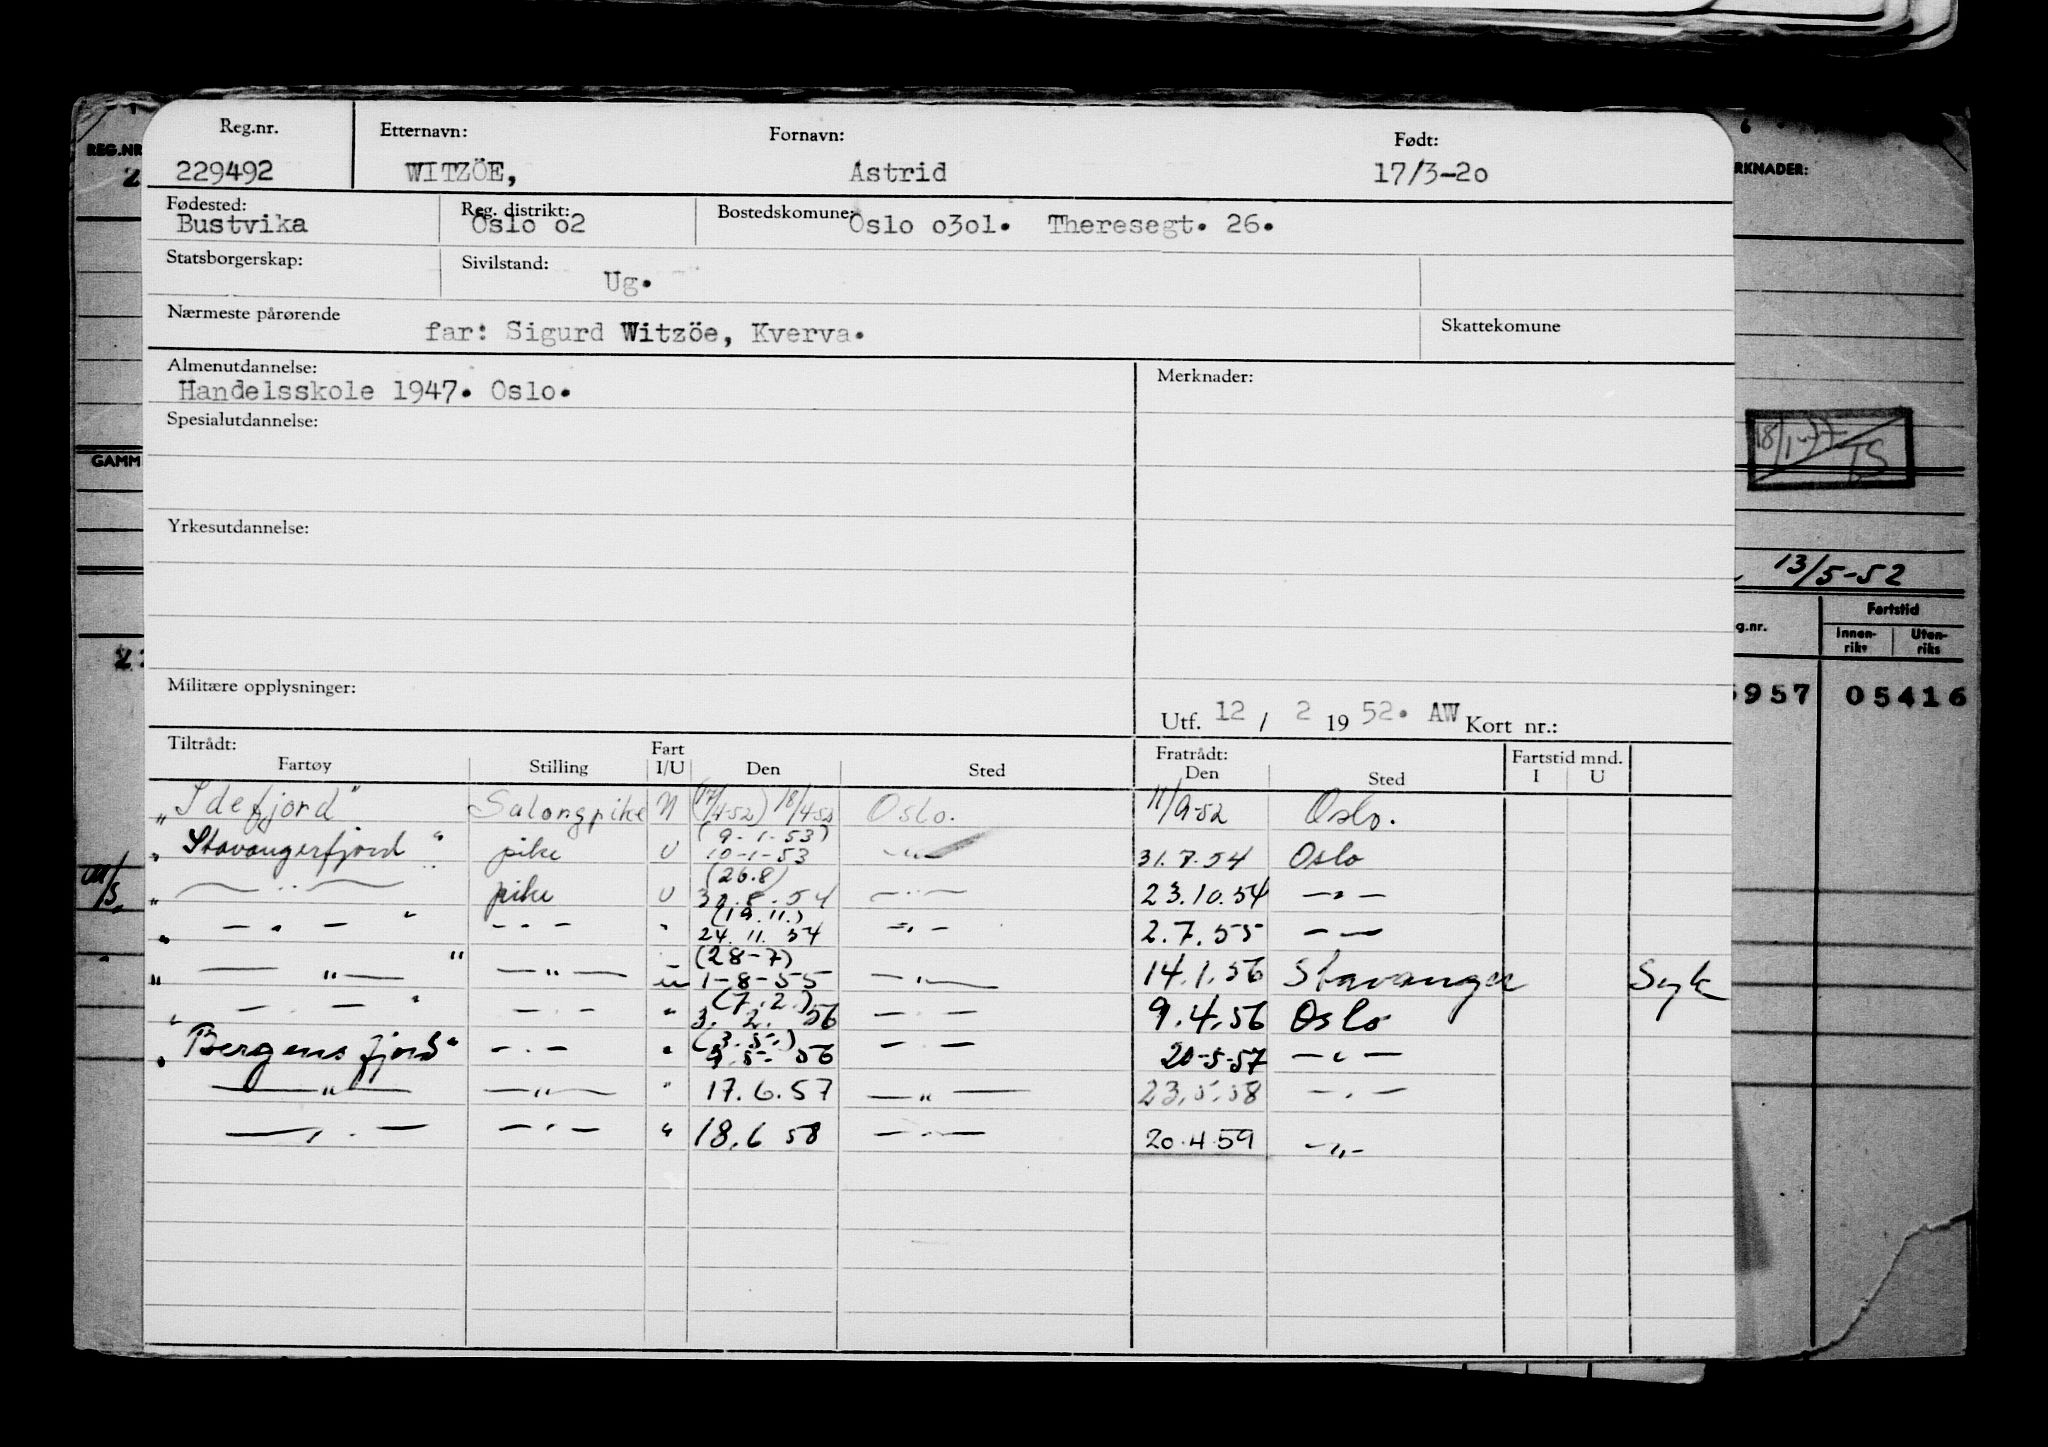 Reg.nr. Etternavn: Fornavn: Født:
229492 WITZÖE, Astrid 17/3-20
Fødested: Reg. distrikt: Bostedskomune:
Bustvika Oslo o2 Oslo o3o1. Theresegt. 26.
Statsborgerskap: Sivilstand:
Ug.
Nærmeste pårørende Skattekomune
far: Sigurd Witzöe, Kverva.
Almenutdannelse: Merknader:
Handelsskole 1947. Oslo.
Spesialutdannelse:
Yrkesutdannelse:
Militære opplysninger:
Utf. 12 / 2 19 52. AW Kort nr.:
Tiltrådt: Fratrådt:
Fartøy Stilling Fart I/U Den Sted Den Sted Fartstid mnd. I U
"Idefjord" Salongpike (17/4-52) 18/4-52 Oslo. 11/9-52 Oslo.
"Stavangerfjord" pike U (9-1-53) 10-1-53 —"— 31.7.54 Oslo
" —"— pike U (26.8) .8.54 —"— 23.10.54 —"—
" —"— " —"— " (19.11.) 24.11.54 —"— 2.7.55 — —
" —"— " —"— u (28-7) 1-8-55 —"— 14.1.56 Stavanger Syk
" — — " —"— " (7.2.) 3.2.56 —"— 9.4.56 Oslo
"Bergensfjord" —"— " (3.5.) 5.56 —"— 20-5-57 —"—
—"— —"— " 17.6.57 —"— 23.5.58 —"—
—"— —"— " 18.6 58 —"— 20.4.59 —"—
REG.NR
2
GAMM
M/S
6
RKNADER:
18/1-77 TS
13/5-52
g.nr. Fartstid
Innen-riks Uten-riks
957 05416